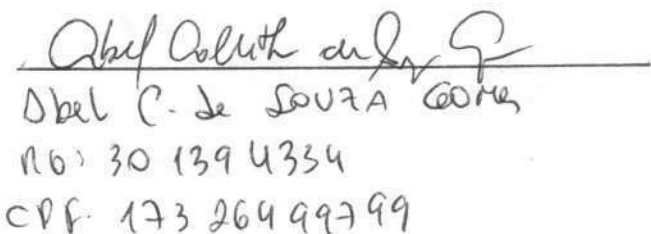 Abel
Abel C. de SOUZA Gomes
RG: 30 139 4334
CPF. 173 264 997 99